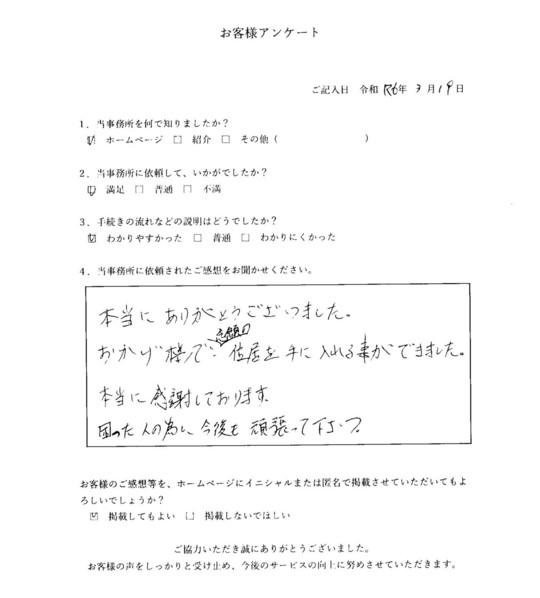 お客様アンケート
ご記入日 令和 R6年 3月19日
1．当事務所を何で知りましたか？
☑ ホームページ □ 紹介 □ その他（ ）
2．当事務所に依頼して、いかがでしたか？
☑ 満足 □ 普通 □ 不満
3．手続きの流れなどの説明はどうでしたか？
☑ わかりやすかった □ 普通 □ わかりにくかった
4．当事務所に依頼されたご感想をお聞かせください。
本当にありがとうございました。
念願の
おかげ様で、住居を手に入れる事ができました。
本当に感謝しております。
困った人の為に、今後も頑張って下さい。
お客様のご感想等を、ホームページにイニシャルまたは匿名で掲載させていただいてもよ
ろしいでしょうか？
☑ 掲載してもよい □ 掲載しないでほしい
ご協力いただき誠にありがとうございました。
お客様の声をしっかりと受け止め、今後のサービスの向上に努めさせていただきます。